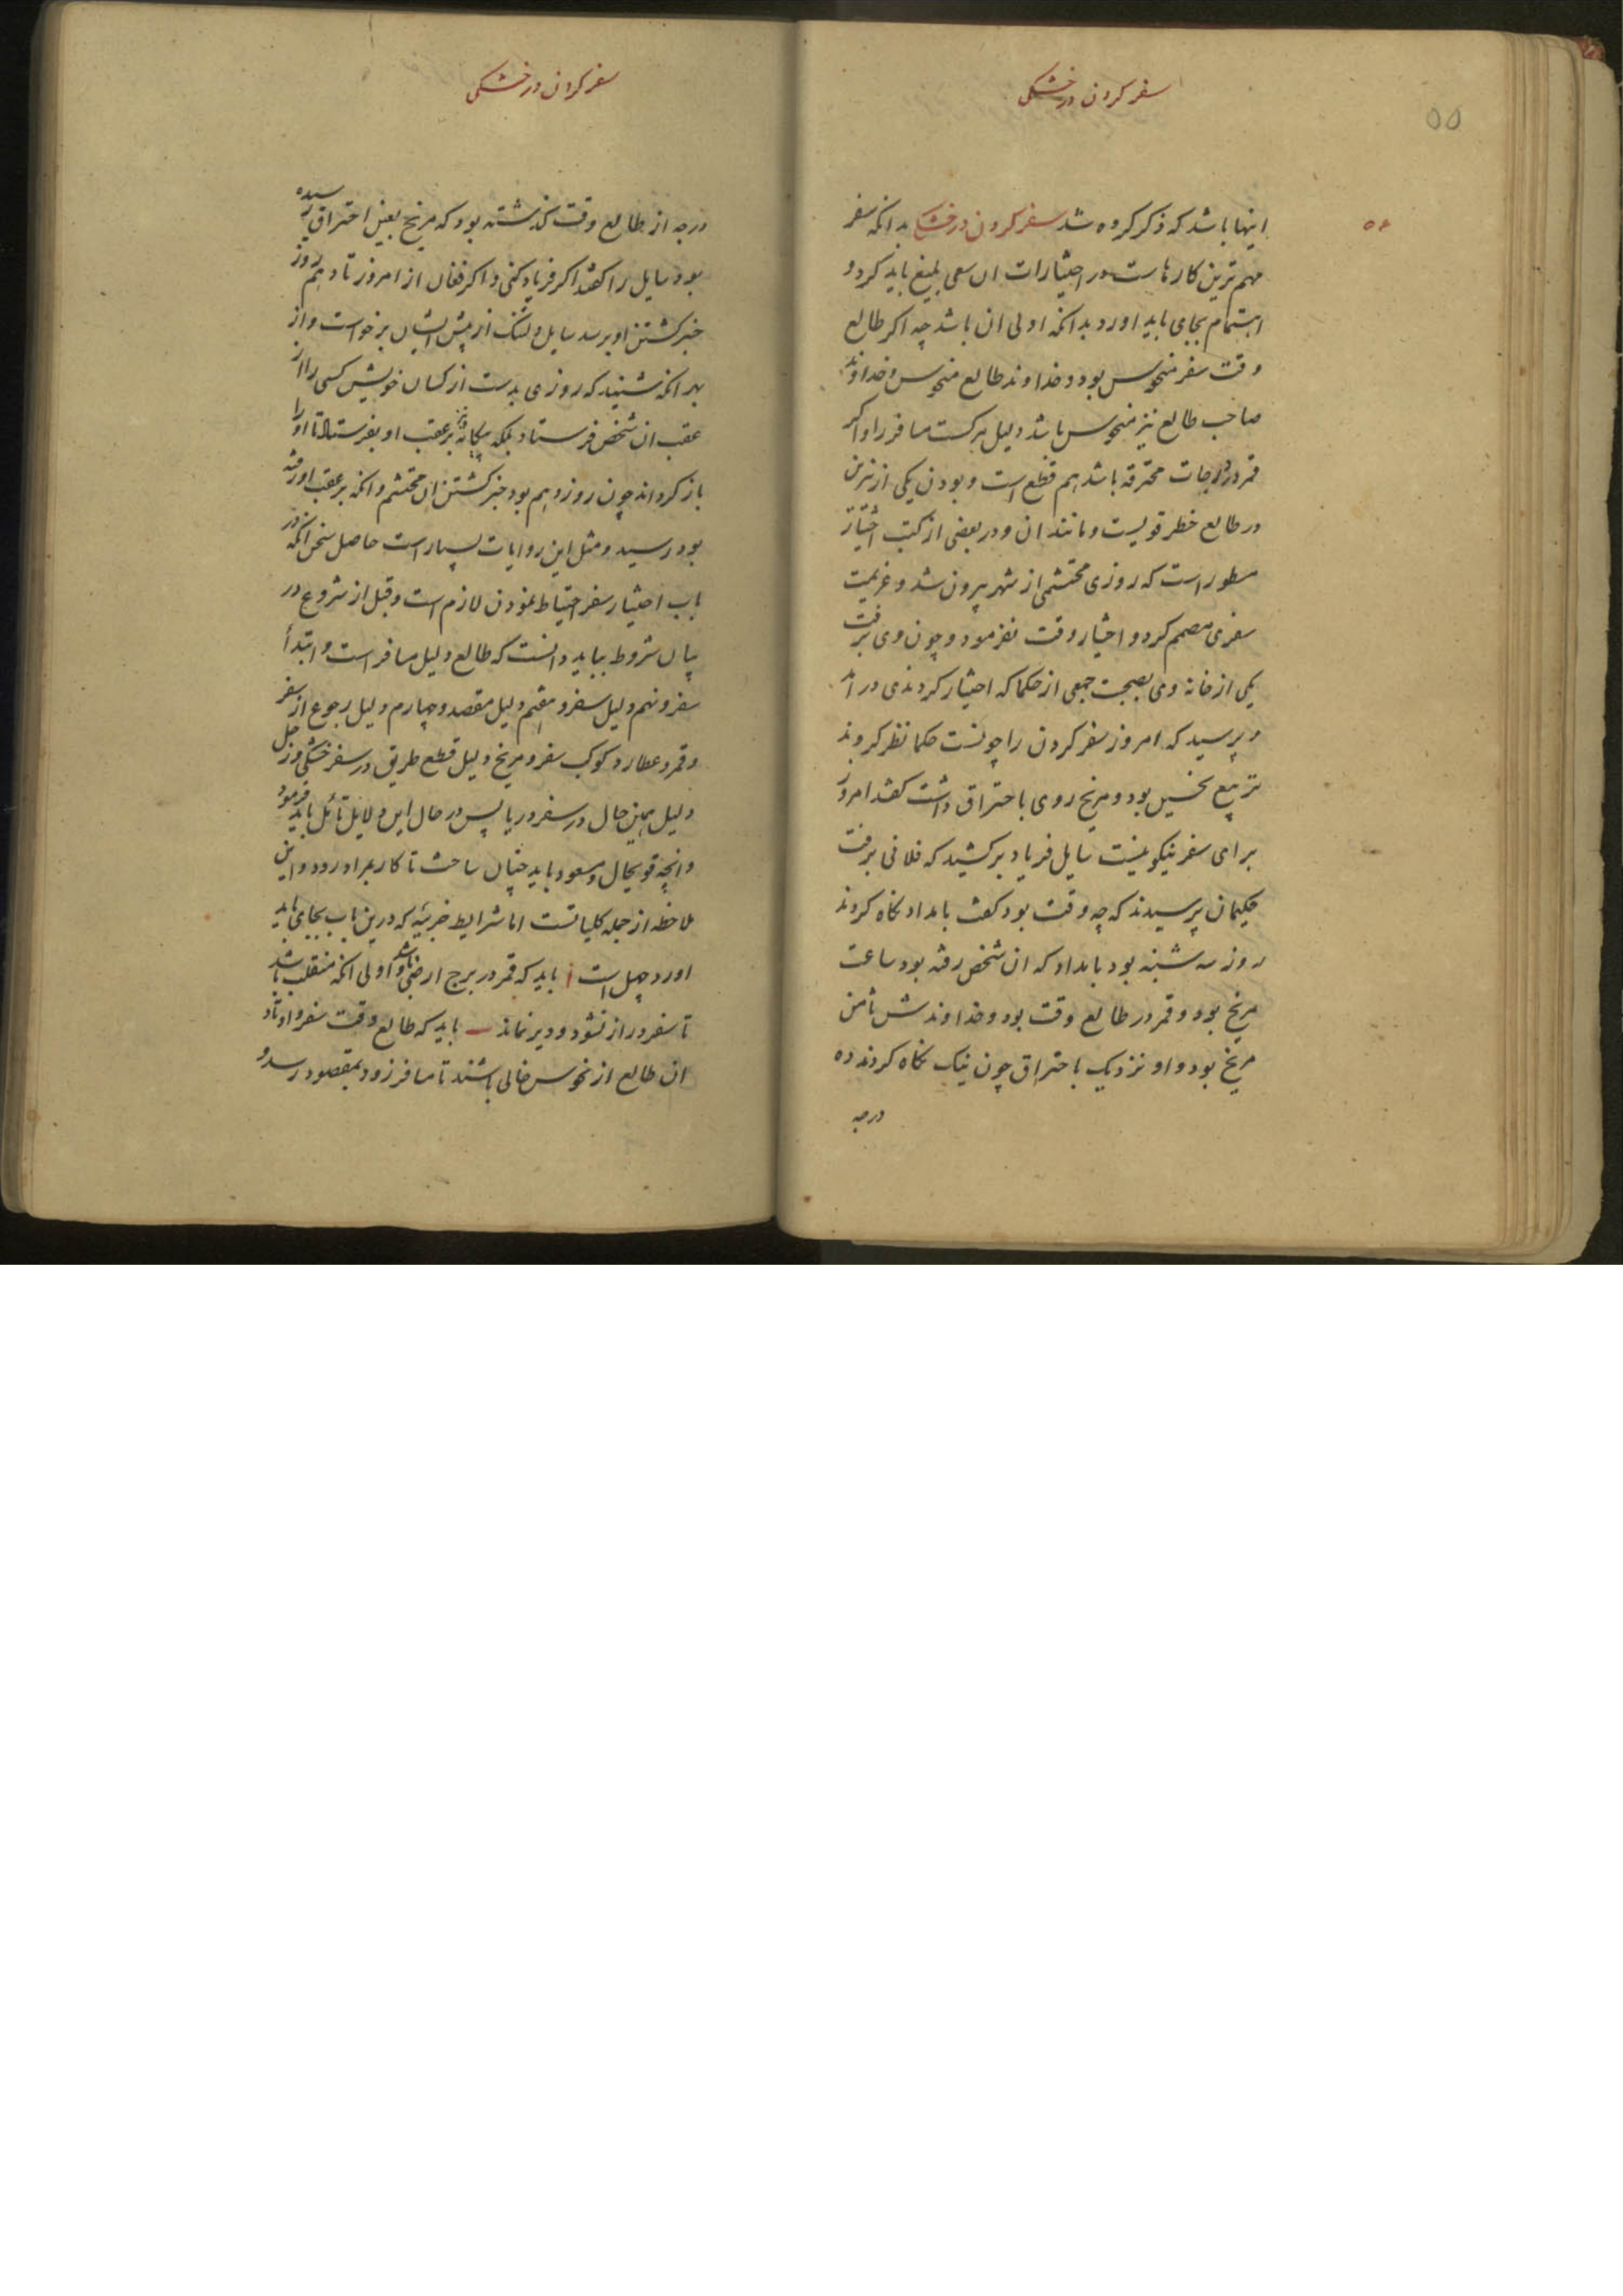 سفر کردن در خشکی
۵۵
اینها باشد که ذکر کرده شد سفر کردن در خشکی بدانکه سفر
مهم ترین کارهاست در اختیارات ان سعی بلیغ باید کرد و
اهتمام بجای باید اورد بدانکه اولی ان باشد چه اکر طالع
وقت سفر منحوس بود و خداوند طالع منحوس و خداوند
صاحب طالع نیز منحوس باشد دلیل مسافر را و اکر
قمر در درجات محترقه باشد هم قطع است و بودن یکی از نیرین
در طالع خطر قویست و مانند ان و در بعضی از کتب اختیارات
مسطور است که روزی محتشمی از شهر بیرون شد و عزیمت
سفری مصمم کرد و اختیار وقت نفرمود و چون وی برفت
یکی از خانه وی بصحبت جمعی از حکما که اختیار کردندی در امد
و پرسید که امروز سفر کردن را چونست حکما نظر کردند
تربیع نحسین بود و مریخ روی باحتراق داشت کفتند امروز
برای سفر نیکو نیست سایل فریاد برکشید که فلانی برفت
حکیمان پرسیدند که چه وقت بود کفت بامداد نکاه کردند
روز سه شنبه بود بامداد که ان شخص رفته بود ساعت
مریخ بود و قمر در طالع وقت بود و خداوندش ثامن
مریخ بود و او نزدیک باحتراق چون نیک نکاه کردند ده
درجه
سفر کردن در خشکی
درجه از طالع وقت کذشته بود که مریخ بعین احتراق رسیده
بود سایل را کفتند اکر فریاد کنی و اکر فغان از امروز تا دهم روز
خبر کشتن او برسد سایل دلتنک از پیش ایشان برخواست و از
بهر انکه شنید که روزی بدست از کسان خویش کسی را از
عقب ان شخص فرستاد بلکه بر عقب او بفرستاد تا او را
باز کرداند چون روز دهم بود خبر کشتن ان محتشم و انکه بر عقب او رفته
بود رسید و مثل این روایات بسیار است حاصل سخن انکه در
باب اختیار سفر احتیاط نمودن لازم است و قبل از شروع در
بیان شروط بباید دانست که طالع دلیل مسافر است و ابتدأ
سفر و نهم دلیل سفر و هفتم دلیل مقصد و چهارم دلیل رجوع از سفر
و قمر و عطارد کوکب سفر و مریخ دلیل قطع طریق در سفر خشکی و زحل
دلیل همین حال در سفر دریا پس در حال این دلایل تأمل باید فرمود
و انچه قویحال و مسعود باید چنان ساخت تا کار بمراد رود و این
ملاحظه از جمله کلیاتست اما شرایط جزییه که درین باب بجای باید
اورد چهل است ا باید که قمر در برج ارضی باشد و اولی انکه منقلب باشد
تا سفر دراز نشود و دیر نماند ب باید که طالع وقت سفر و اوتاد
ان طالع از نحوس خالی باشند تا مسافر زود بمقصود رسد و